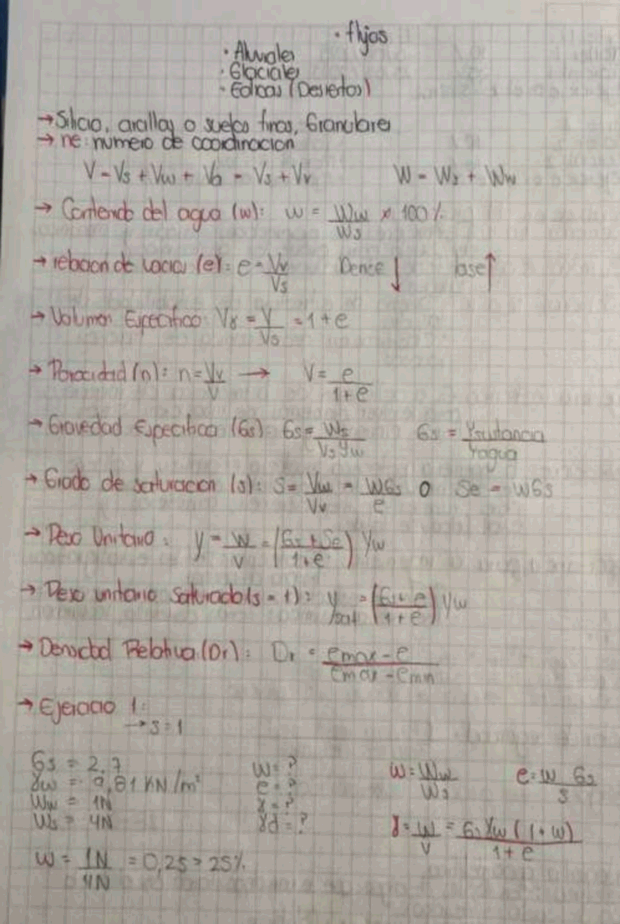 · flujos
· Aluviales
· Glaciales
· Eolicas (Desiertos)
→ Silicio, arcillas o suelos finos, Granulares
→ nc: numero de coordinacion
V = Vs + Vw + Va = Vs + Vv   W = Ws + Ww
→ Contenido del agua (w): w = Ww/Ws × 100%
→ relacion de vacios (e): e = Vv/Vs   Dence ↓   lose ↑
→ Volumen Especifico: Vs = V/Vs = 1+e
→ Porocidad (n): n = Vv/V → V = e/1+e
→ Gravedad Especifica (Gs): Gs = Ws/Vsγw   Gs = γsustancia/γagua
→ Grado de saturacion (s): S = Vw/Vv = WGs/e o Se = WGs
→ Peso Unitario: γ = W/V = (Gs + Se/1+e) γw
→ Peso unitario saturado (s = 1): γsat = (Gs + e/1+e) γw
→ Densidad Relativa (Dr): Dr = emax - e/emax - emin
→ Ejercicio 1:
→ s = 1
Gs = 2,7   w = ?   w = Ww/Ws   e = w Gs/s
γw = 9,81 KN/m³   e = ?
Ww = 1N   γ = ?
Ws = 4N   γd = ?   γ = W/V = Gs γw (1 + w)/1 + e
w = 1N/4N = 0,25 = 25%